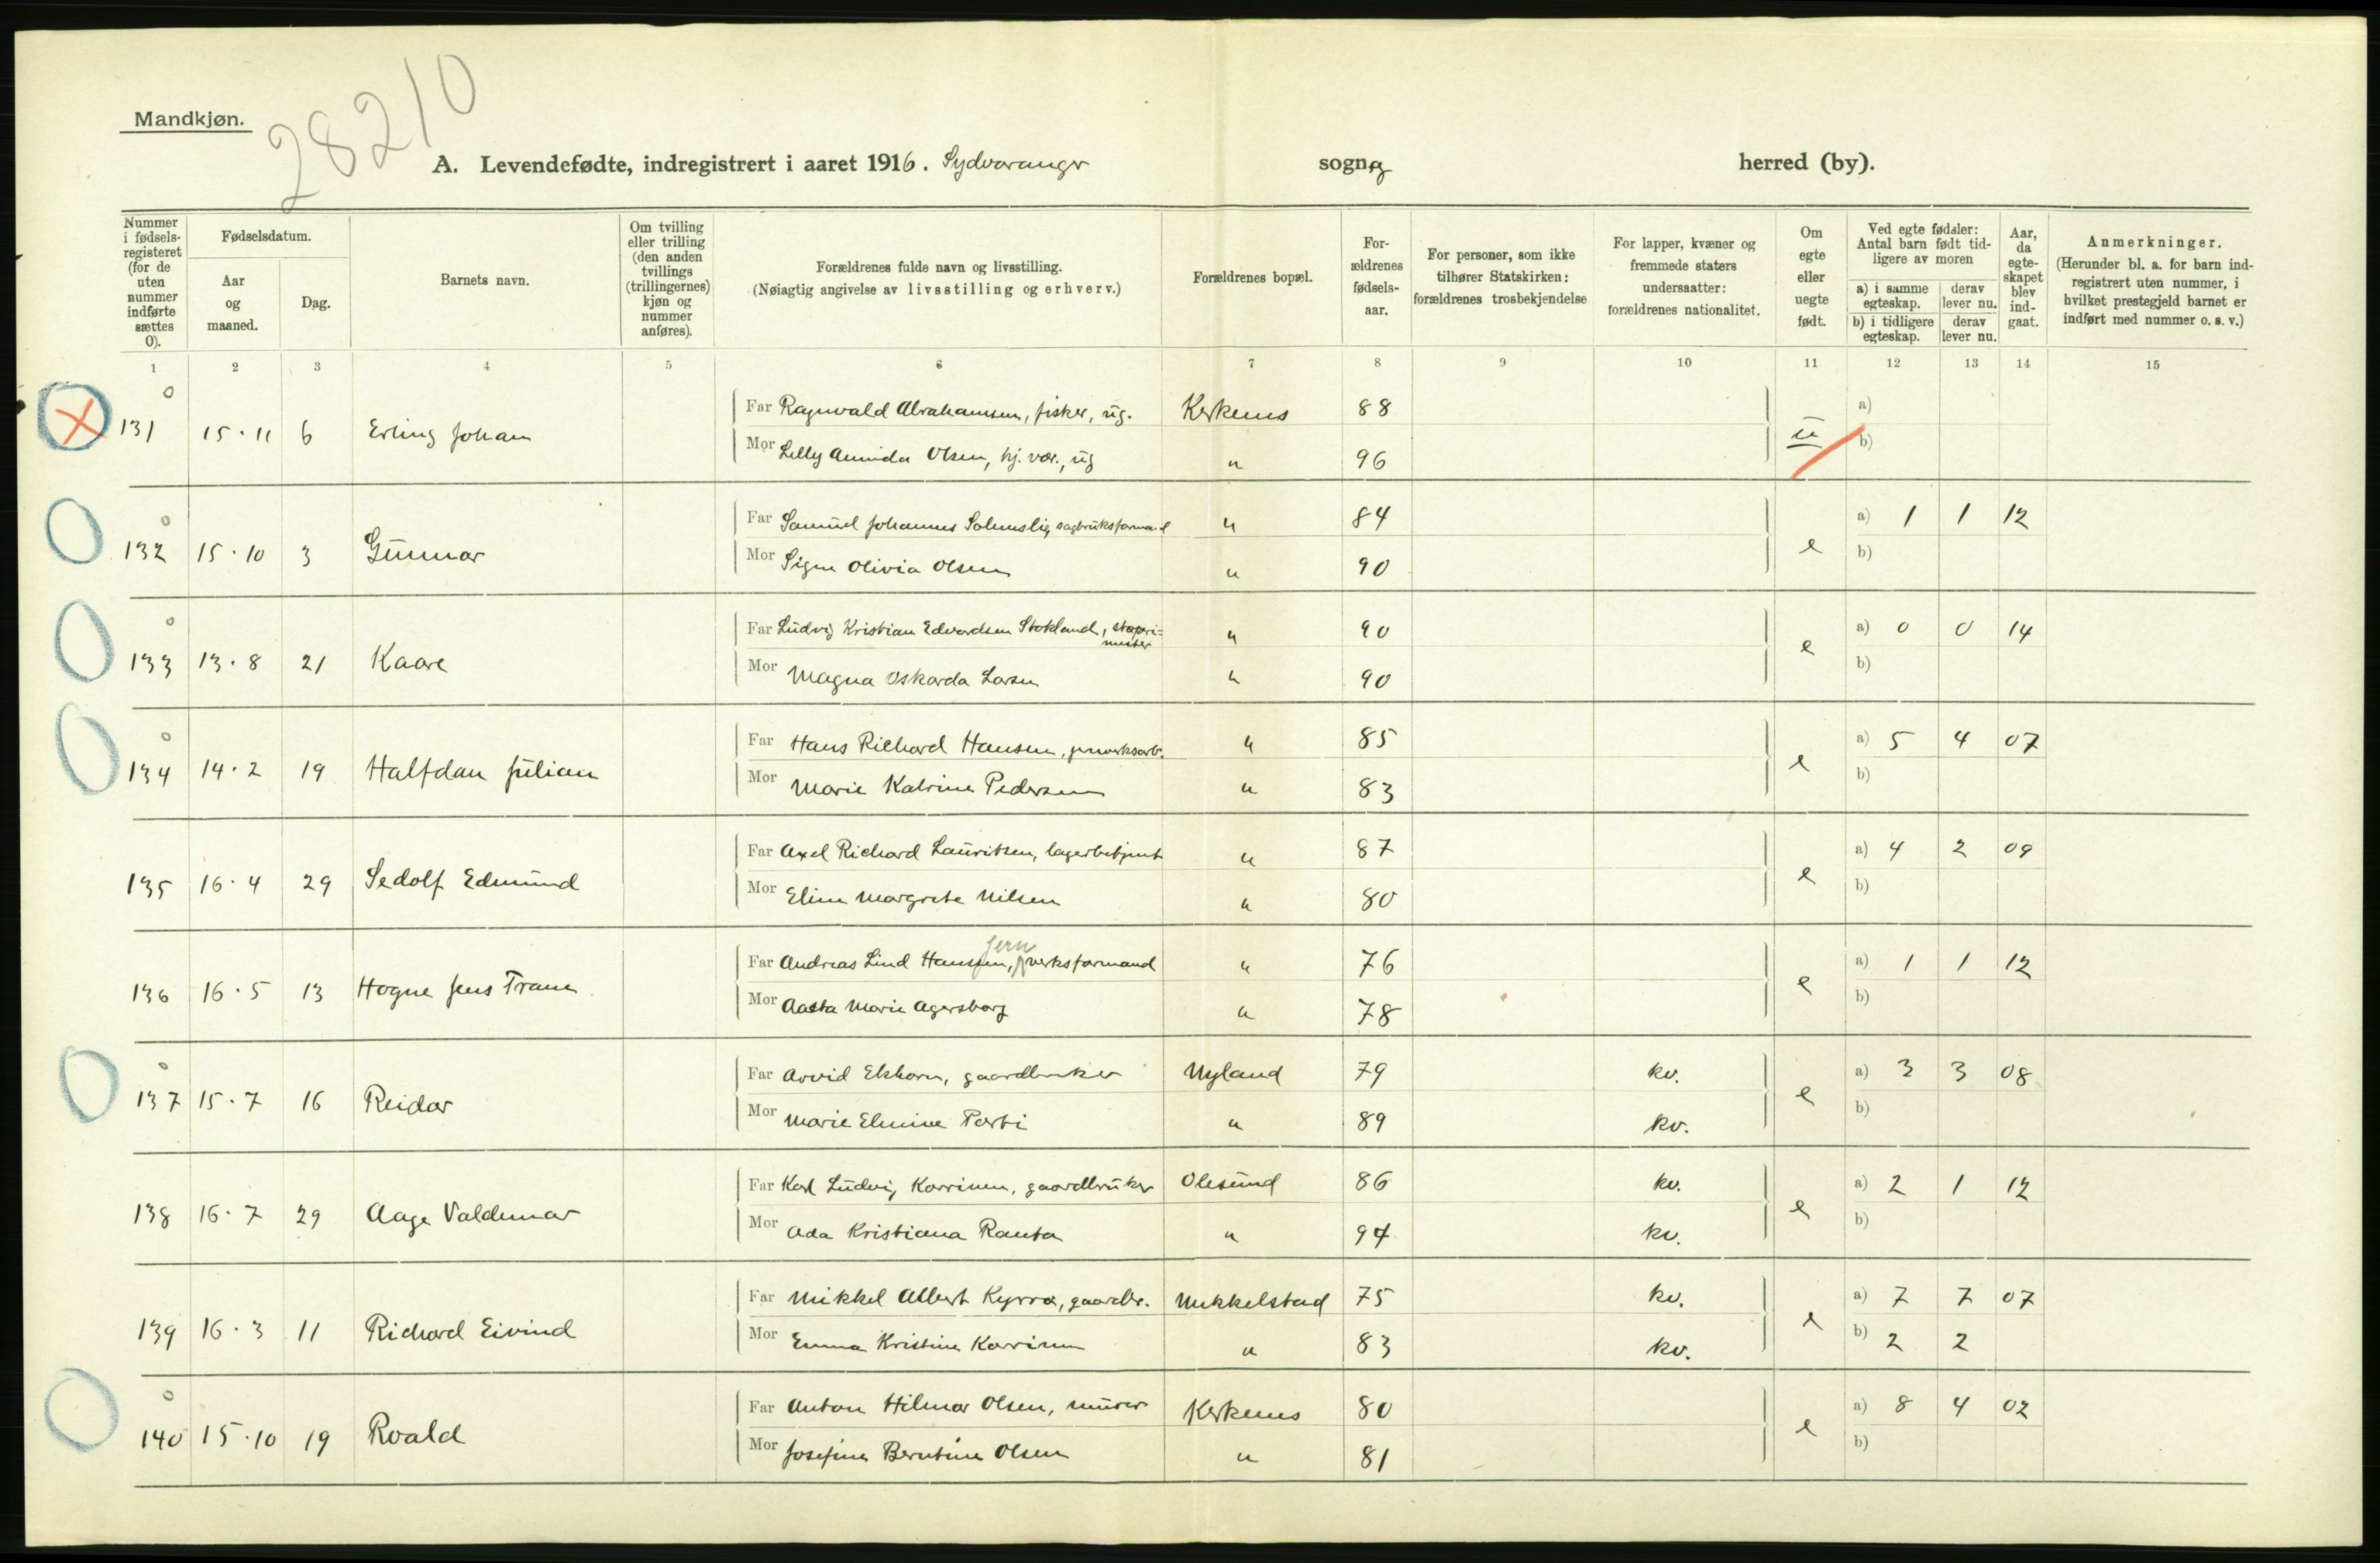 28210
Mandkjøn.
A. Levendefødte, indregistrert i aaret 1916. Sydvaranger sogn og herred (by).
Nummer i fødsels-registeret (for de uten nummer indførte sættes 0).
Fødselsdatum.
Aar og maaned.
Dag.
Barnets navn.
Om tvilling eller trilling (den anden tvillings (trillingernes) kjøn og nummer anføres).
Forældrenes fulde navn og livsstilling.
(Nøiagtig angivelse av livsstilling og erhverv.)
Forældrenes bopæl.
For-ældrenes fødsels-aar.
For personer, som ikke tilhører Statskirken: forældrenes trosbekjendelse
For lapper, kvæner og fremmede staters undersaatter: forældrenes nationalitet.
Om egte eller uegte født.
Ved egte fødsler: Antal barn født tid-ligere av moren
a) i samme egteskap. derav lever nu.
b) i tidligere egteskap. derav lever nu.
Aar, da egte-skapet blev ind-gaat.
Anmerkninger.
(Herunder bl. a. for barn ind-registrert uten nummer, i hvilket prestegjeld barnet er indført med nummer o. s. v.)
1 2 3 4 5 6 7 8 9 10 11 12 13 14 15
0
131 15·11 6 Erling Johan Far Ragnvald Abrahamsen, fisker, ug. Kirkenes 88 u a)
Mor Lilly Aminda Olsen, hj. vær., ug " 96 b)
0
132 15·10 3 Gunnar Far Samuel Johannes sagbruksformand " 84 e a) 1 1 12
Mor Signe Olivia Olsen " 90 b)
0
133 13·8 21 Kaare Far Ludvig Kristian Edvardsen Stokland, " 90 e a) 0 0 14
Mor Magna Oskarda Larsen " 90 b)
0
134 14·2 19 Halfdan Julian Far Hans Richard Hansen, " 85 e a) 5 4 07
Mor Marie Katrine Pedersen " 83 b)
135 16·4 29 Sedolf Edmund Far Axel Richard Lauritsen, lagerbetjent " 87 e a) 4 2 09
Mor Eline Margrete Nilsen " 80 b)
136 16·5 13 Hogne Jens Trane Far Andreas Lind Hansen, jernverksformand " 76 e a) 1 1 12
Mor Aasta Marie Agersborg " 78 b)
0
137 15·7 16 Reidar Far Arvid Ekhorn, gaardbruker Nyland 79 kv. e a) 3 3 08
Mor Marie Elmine Porti " 89 kv. b)
138 16·7 29 Aage Valdemar Far Karl Ludvig Karrinen, gaardbruker Olesund 86 kv. e a) 2 1 12
Mor Ada Kristiana Ranta " 94 kv. b)
139 16·3 11 Richard Eivind Far Mikkel Albert Kyrrø, gaardbr. Mikkelstad 75 kv. e a) 7 7 07
Mor Emma Kristine Karrinen " 83 kv. b) 2 2
0
140 15·10 19 Roald Far Anton Hilmar Olsen, murer Kirkenes 80 e a) 8 4 02
Mor Josefine Berntine Olsen " 81 b)